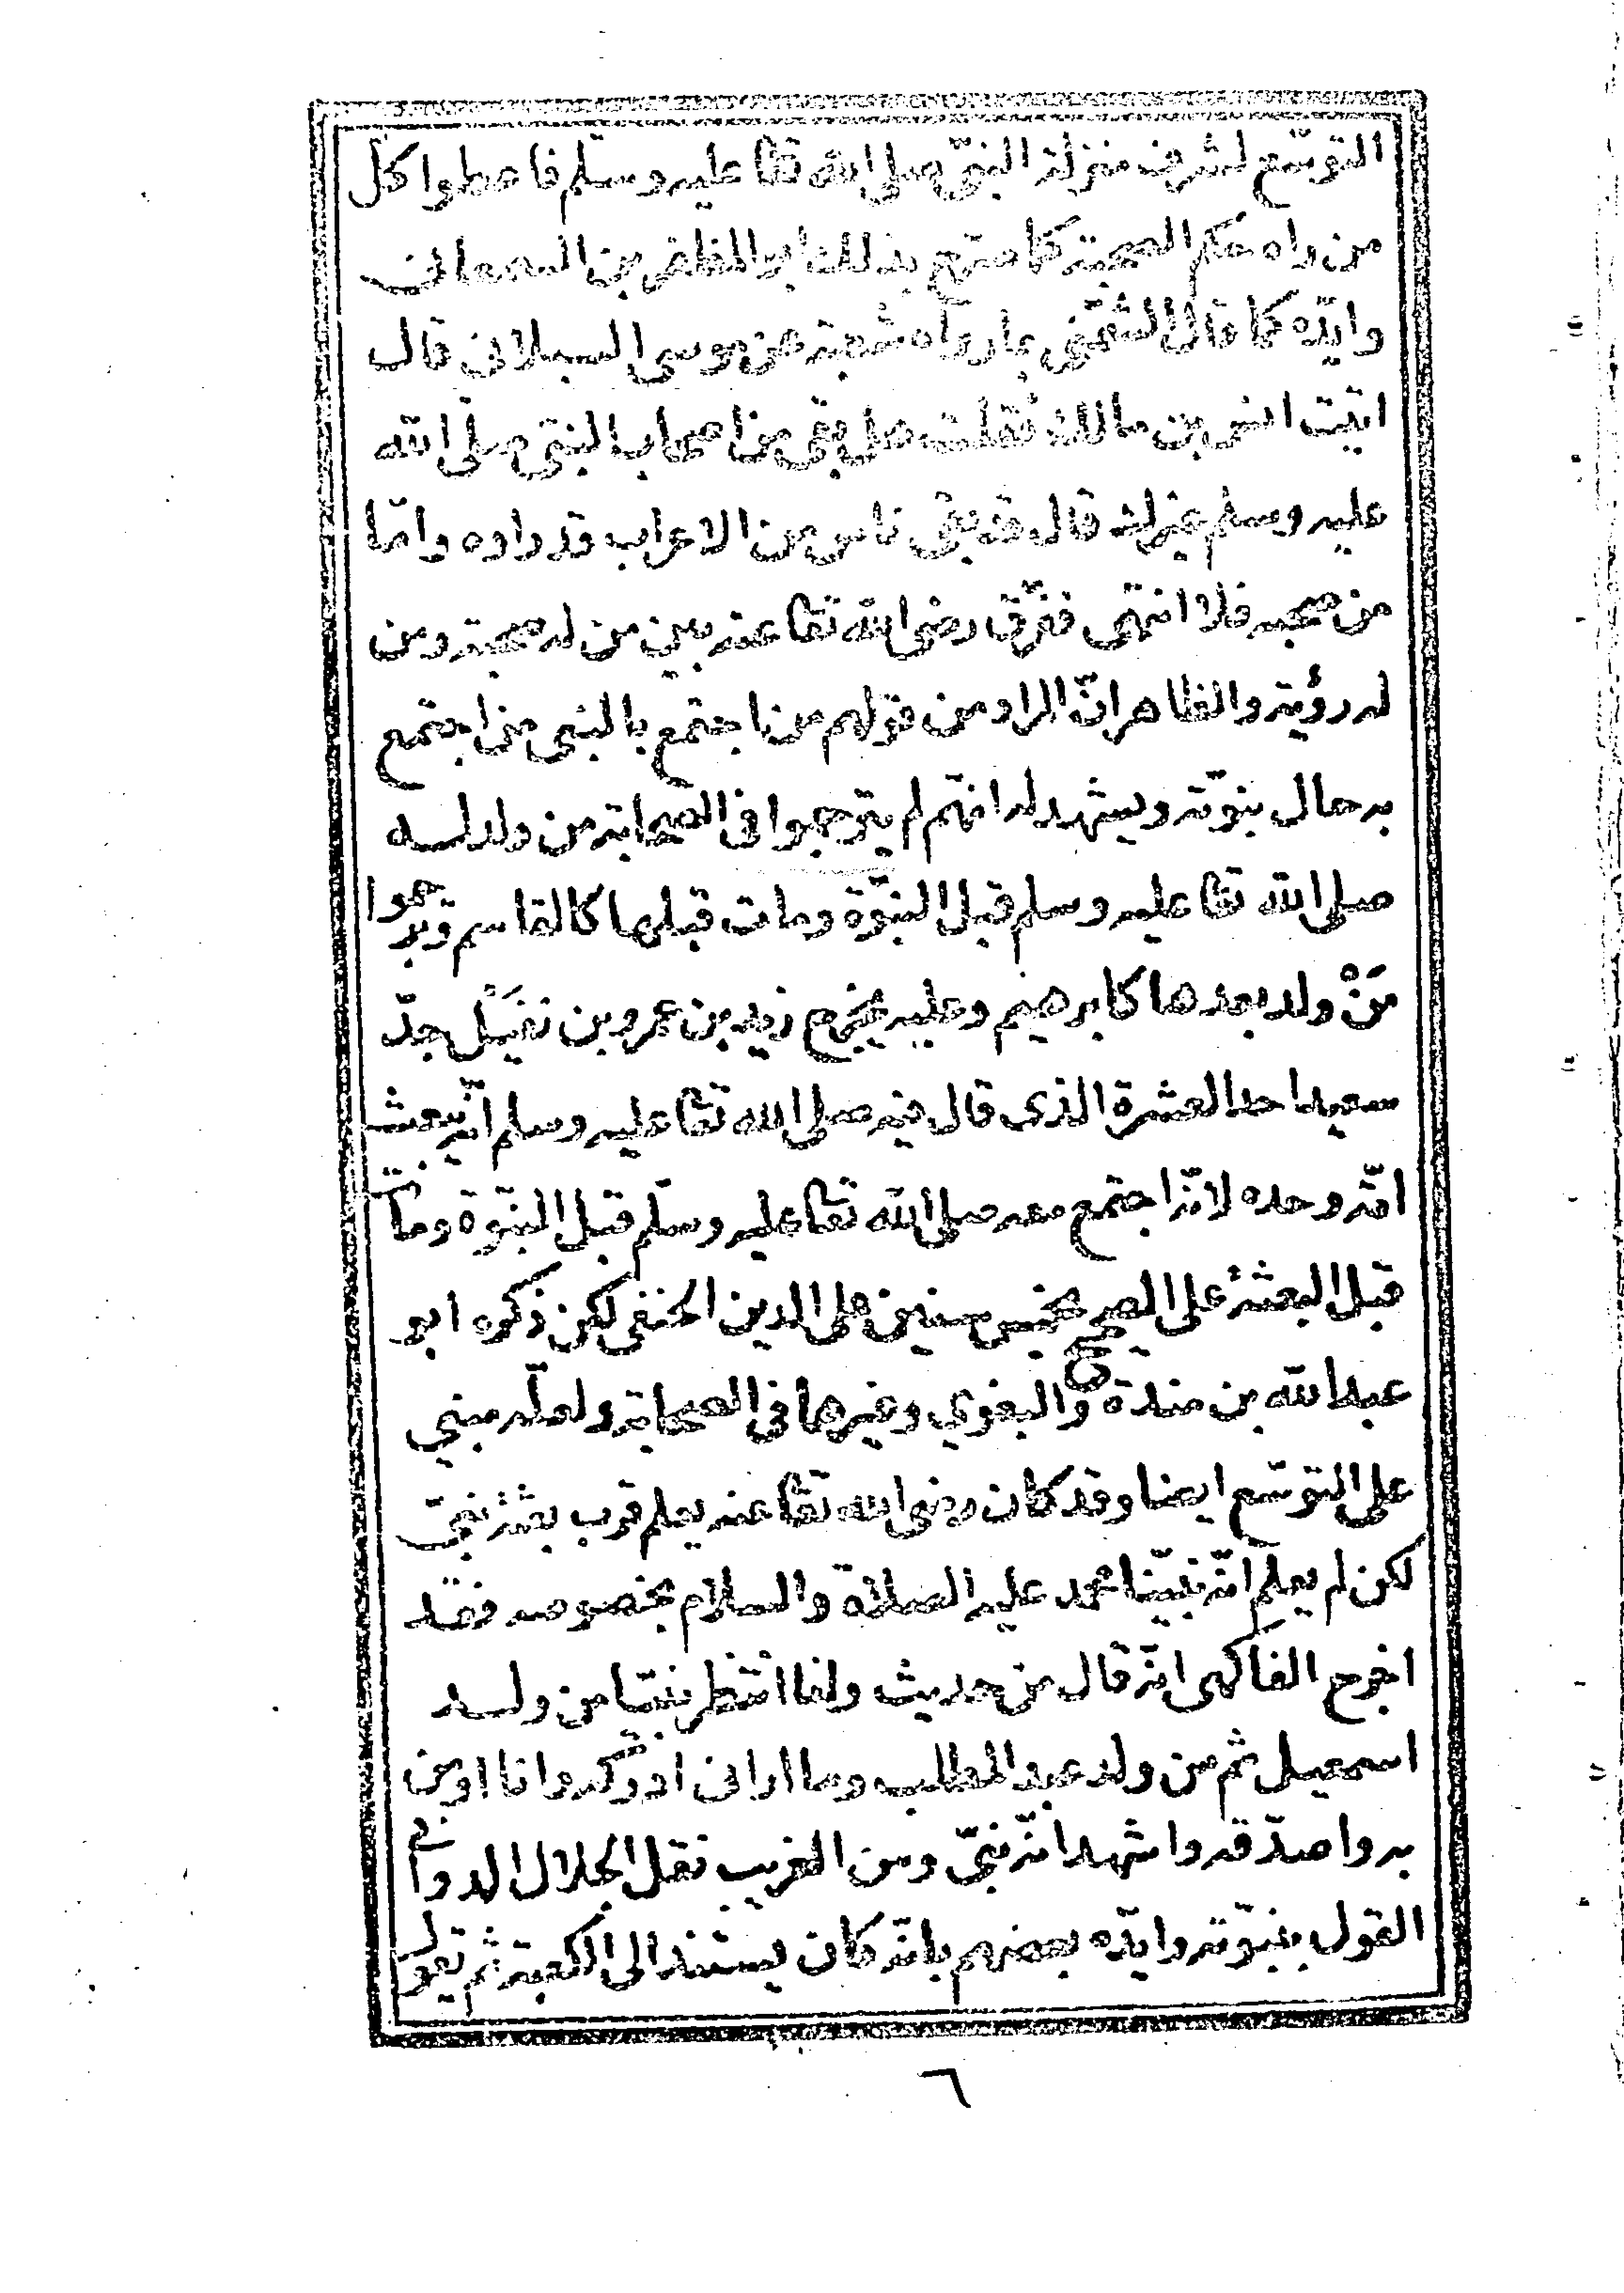 التوسّع لشرف منزلة النبيّ صلى الله تعا عليه وسلّم فاعطوا كلّ
من راه حكم الصحبة كما صرّح بذلك ابو المظفر بن السمعانى
وايّده كما قال الشمّنى بما رواه شعبة عن موسى السبلانى قال
اتيت انس بن مالك فقلت هل بقى من اصحاب النبيّ صلّى الله
عليه وسلم غيرك قال قد بقى ناس من الاعراب قد راوه وامّا
من صحبه فلا انتهى ففرّق رضى الله تعا عنه بين من له صحبة ومن
له رؤية والظاهر انّ المراد من قولهم من اجتمع بالنبى من اجتمع
به حال نبوّته ويشهد له انهم لم يترجموا فى الصحابة من ولد لـه
صلى الله تعا عليه وسلم قبل النبوّة ومات قبلها كالقاسم وترجموا
مَنْ ولد بعدها كابرهيم وعليه يخرج زيد بن عمرو بن نفيل جدّ
سعيد احد العشرة الذى قال فيه صلى الله تعا عليه وسلم انّه يبعث
امّة وحده لانّه اجتمع معه صلى الله تعا عليه وسلّم قبل النبوّة ومات
قبل البعثة على الصحيح بخمس سنين على الدين الحنفى لكن ذكره ابو
عبد الله بن مندة والبغوي وغيرهما فى الصحابة ولعلّه مبني
على التوسّع ايضا وقد كان رضى الله تعا عنه يعلم قرب بعثة نبىّ
لكن لم يعلم انّه نبيّنا محمد عليه الصلاة والسلام بخصوصه فقد
اخرج الفاكهى انّه قال من حديث وانا انتظر نبيّا من ولـد
اسمعيل ثم من ولد عبد المطلب وما ارانى ادركه وانا اومن
به واصدّقه واشهد انّه نبىّ ومن الغريب نقل الجلال الدوانى
القول بنبوّته وايّده بعضهم بانّه كان يستند الى الكعبة ثم يقول
٦